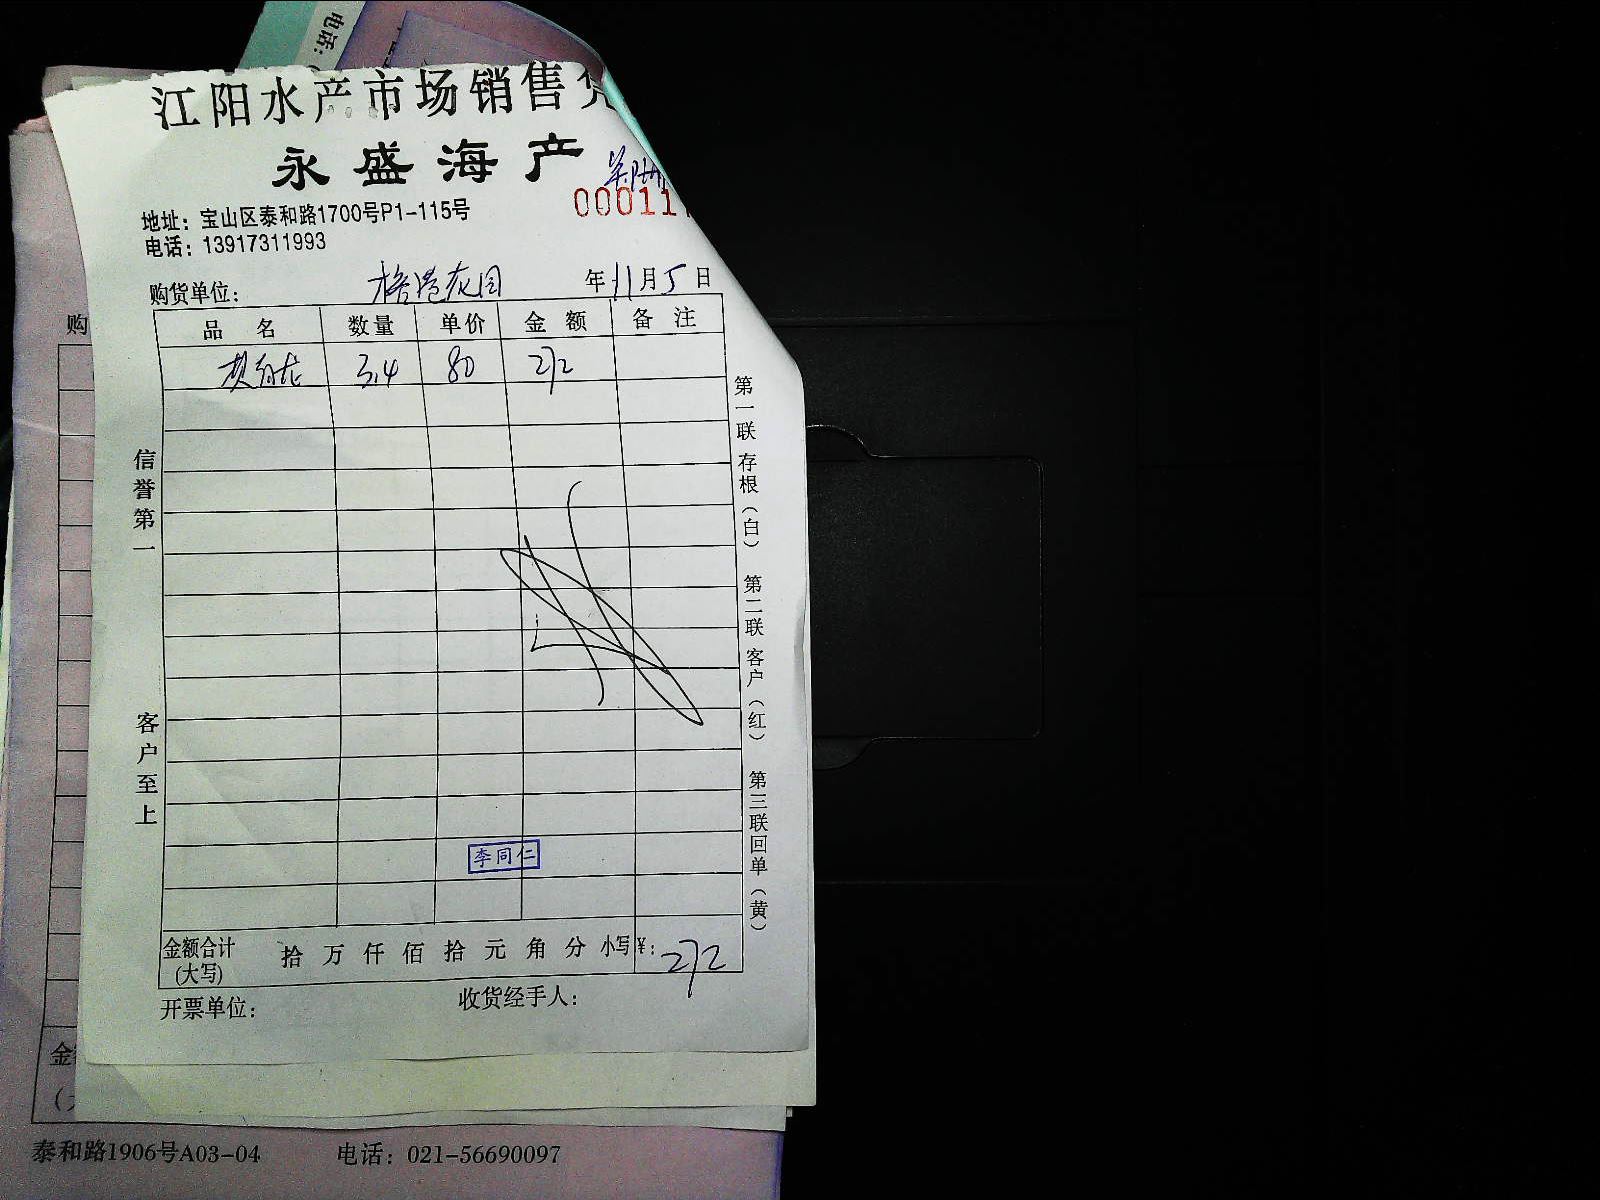 电话：
江阳水产市场销售
永盛海产
00011
地址：宝山区泰和路1700号P1-115号
电话：13917311993
购货单位： 花园 年11月5日
品名 数量 单价 金额 备注
3.4 80 272
信誉第一
客户至上
第一联存根（白） 第二联客户（红） 第三联回单（黄）
李同仁
金额合计（大写） 拾万仟佰拾元角分 小写¥：272
开票单位： 收货经手人：
购
金
泰和路1906号A03-04 电话：021-56690097